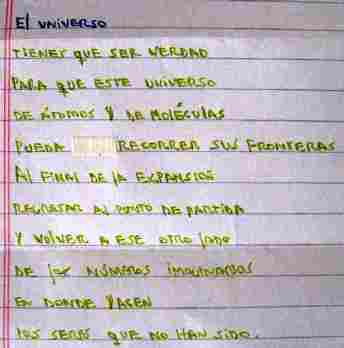 El UNIVERSO
TIENES QUE SER VERDAD
PARA QUE ESTE UNIVERSO
DE ÁTOMOS Y DE MOLÉCULAS
PUEDA RECORRER SUS FRONTERAS
Al FINAL DE lA EXPANSIÓN
REGRESAR Al PUNTO DE PARTIDA
Y VOLVER A ESE OTRO lADO
DE lOS NÚMEROS IMAGINARIOS
EN DONDE YACEN
lOS SERES QUE NO HAN SIDO.